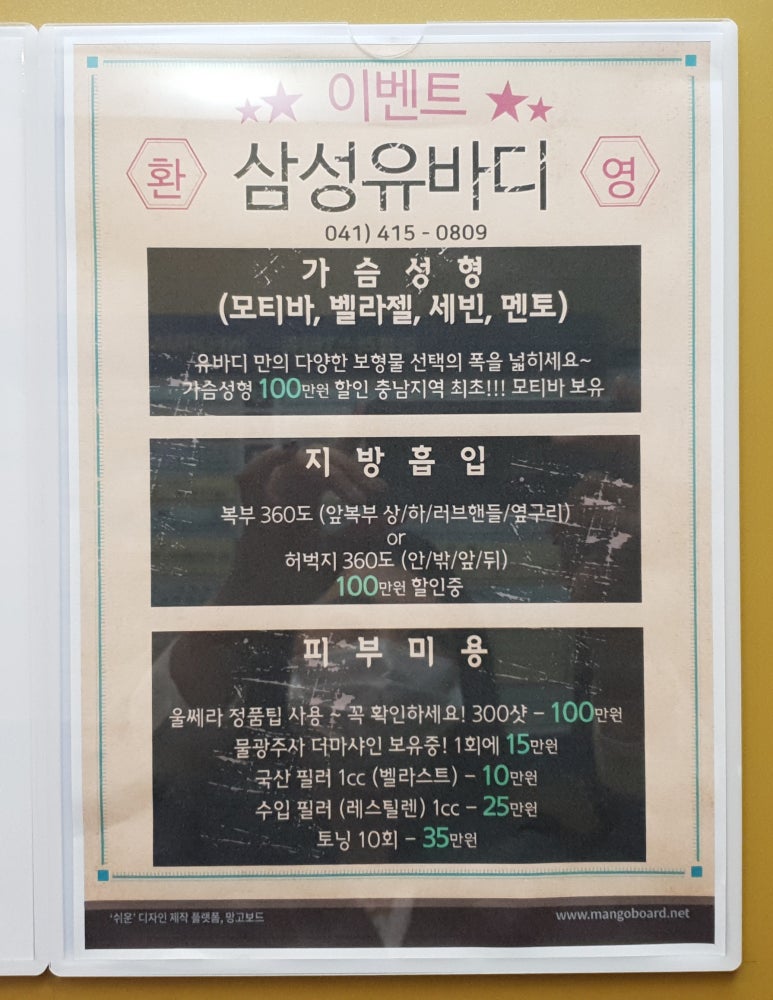 이벤트
환 삼성유바디 영
041) 415 - 0809
가 슴 성 형
(모티바, 벨라젤, 세빈, 멘토)
유바디 만의 다양한 보형물 선택의 폭을 넓히세요~
가슴성형 100만원 할인 충남지역 최초!!! 모티바 보유
지 방 흡 입
복부 360도 (앞복부 상/하/러브핸들/옆구리)
or
허벅지 360도 (안/밖/앞/뒤)
100만원 할인중
피 부 미 용
울쎄라 정품팁 사용 ~ 꼭 확인하세요! 300샷 - 100만원
물광주사 더마샤인 보유중! 1회에 15만원
국산 필러 1cc (벨라스트) - 10만원
수입 필러 (레스틸렌) 1cc - 25만원
토닝 10회 - 35만원
'쉬운' 디자인 제작 플랫폼, 망고보드 www.mangoboard.net